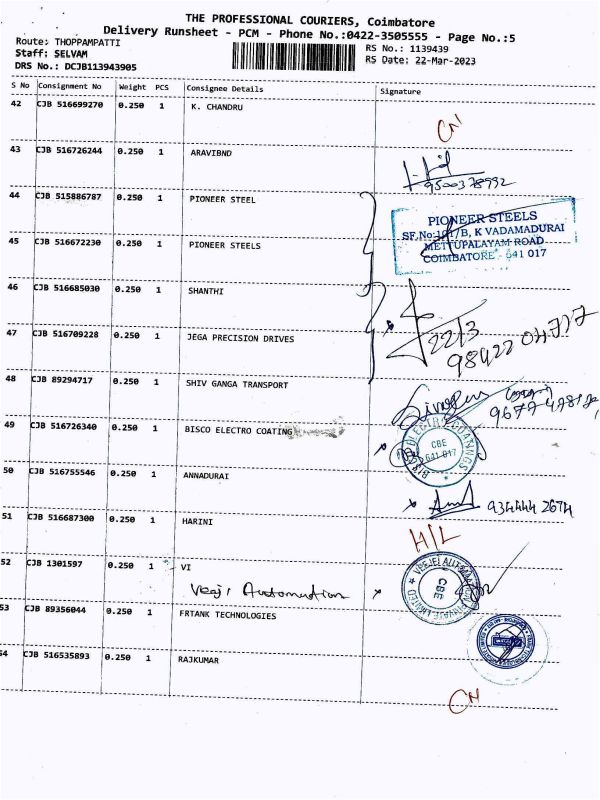 THE PROFESSIONAL COURIERS, Coimbatore
Delivery Runsheet - PCM - Phone No.:0422-3505555 - Page No.:5
Route: THOPPAMPATTI
RS No.: 1139439
Staff: SELVAM
RS Date: 22-Mar-2023
DRS No.: DCJB113943905
S No Consignment No Weight PCS Consignee Details Signature
42 CJB 516699270 0.250 1 K. CHANDRU
CN
43 CJB 516726244 0.250 1 ARAVIBND
9500378992
44 CJB 515886787 0.250 1 PIONEER STEEL
PIONEER STEELS
SF.No:191/B, K VADAMADURAI
METTUPALAYAM ROAD
COIMBATORE - 641 017
45 CJB 516672230 0.250 1 PIONEER STEELS
46 CJB 516685030 0.250 1 SHANTHI
22/3
98422 04727
47 CJB 516709228 0.250 1 JEGA PRECISION DRIVES
48 CJB 89294717 0.250 1 SHIV GANGA TRANSPORT
49 CJB 516726340 0.250 1 BISCO ELECTRO COATING
CBE
641 017
50 CJB 516755546 0.250 1 ANNADURAI
934444 2674
51 CJB 516687300 0.250 1 HARINI
H/L
52 CJB 1301597 0.250 1 VI
Veeji Automation
VEEJEI AUTOMATION PRIVATE LIMITED
CBE
53 CJB 89356044 0.250 1 FRTANK TECHNOLOGIES
54 CJB 516535893 0.250 1 RAJKUMAR
CN